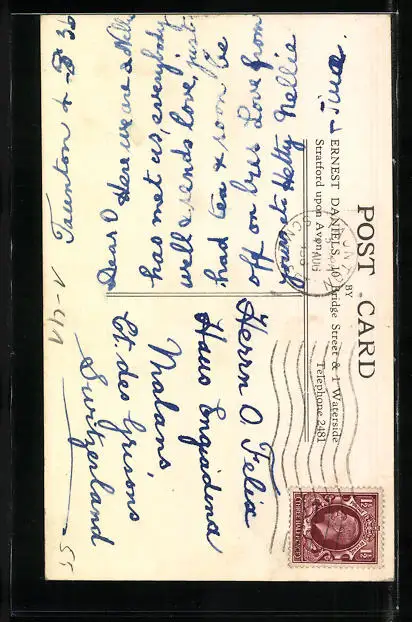 POST CARD
BY
ERNEST DANIELS, 40 Bridge Street & 1 Waterside
Stratford upon Avon. Telephone 2481
Taunton 4-8 36
Dear O Here we are & Nellie
has met us, everybody
well & sends love, just
had tea & soon be
off on bus Love from
Hetty Nellie
Herrn O. Felix
Haus Engiadina
Malans
Ct. des Grisons
Switzerland
1½ 1½
THREE HALFPENCE
AUG